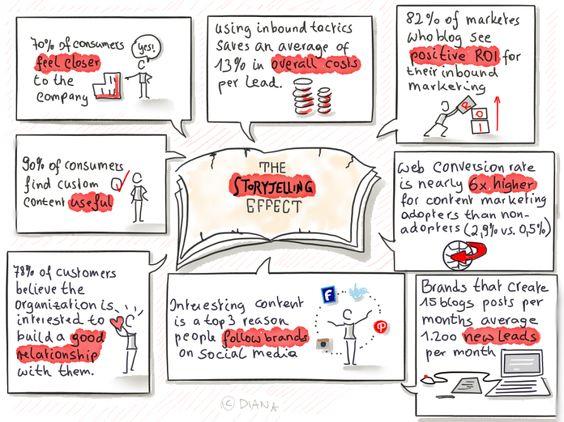 70% of consumers
feel closer
to the
company
yes!
using inbound tactics
saves an average of
13% in overall costs
per lead.
82% of marketes
who blog see
positive ROI for
their inbound
marketing
R
O
I
90% of consumers
find custom
content useful
THE
STORYTELLING
EFFECT
Web conversion rate
is nearly 6x higher
for content marketing
adopters than non-
adopters (2,9% vs. 0,5%)
78% of customers
believe the
organization is
interested to
build a good
relationship
with them.
Interesting content
is a top 3 reason
people follow brands
on social media
Brands that create
15 blogs posts per
months average
1.200 new leads
per month
© DIANA